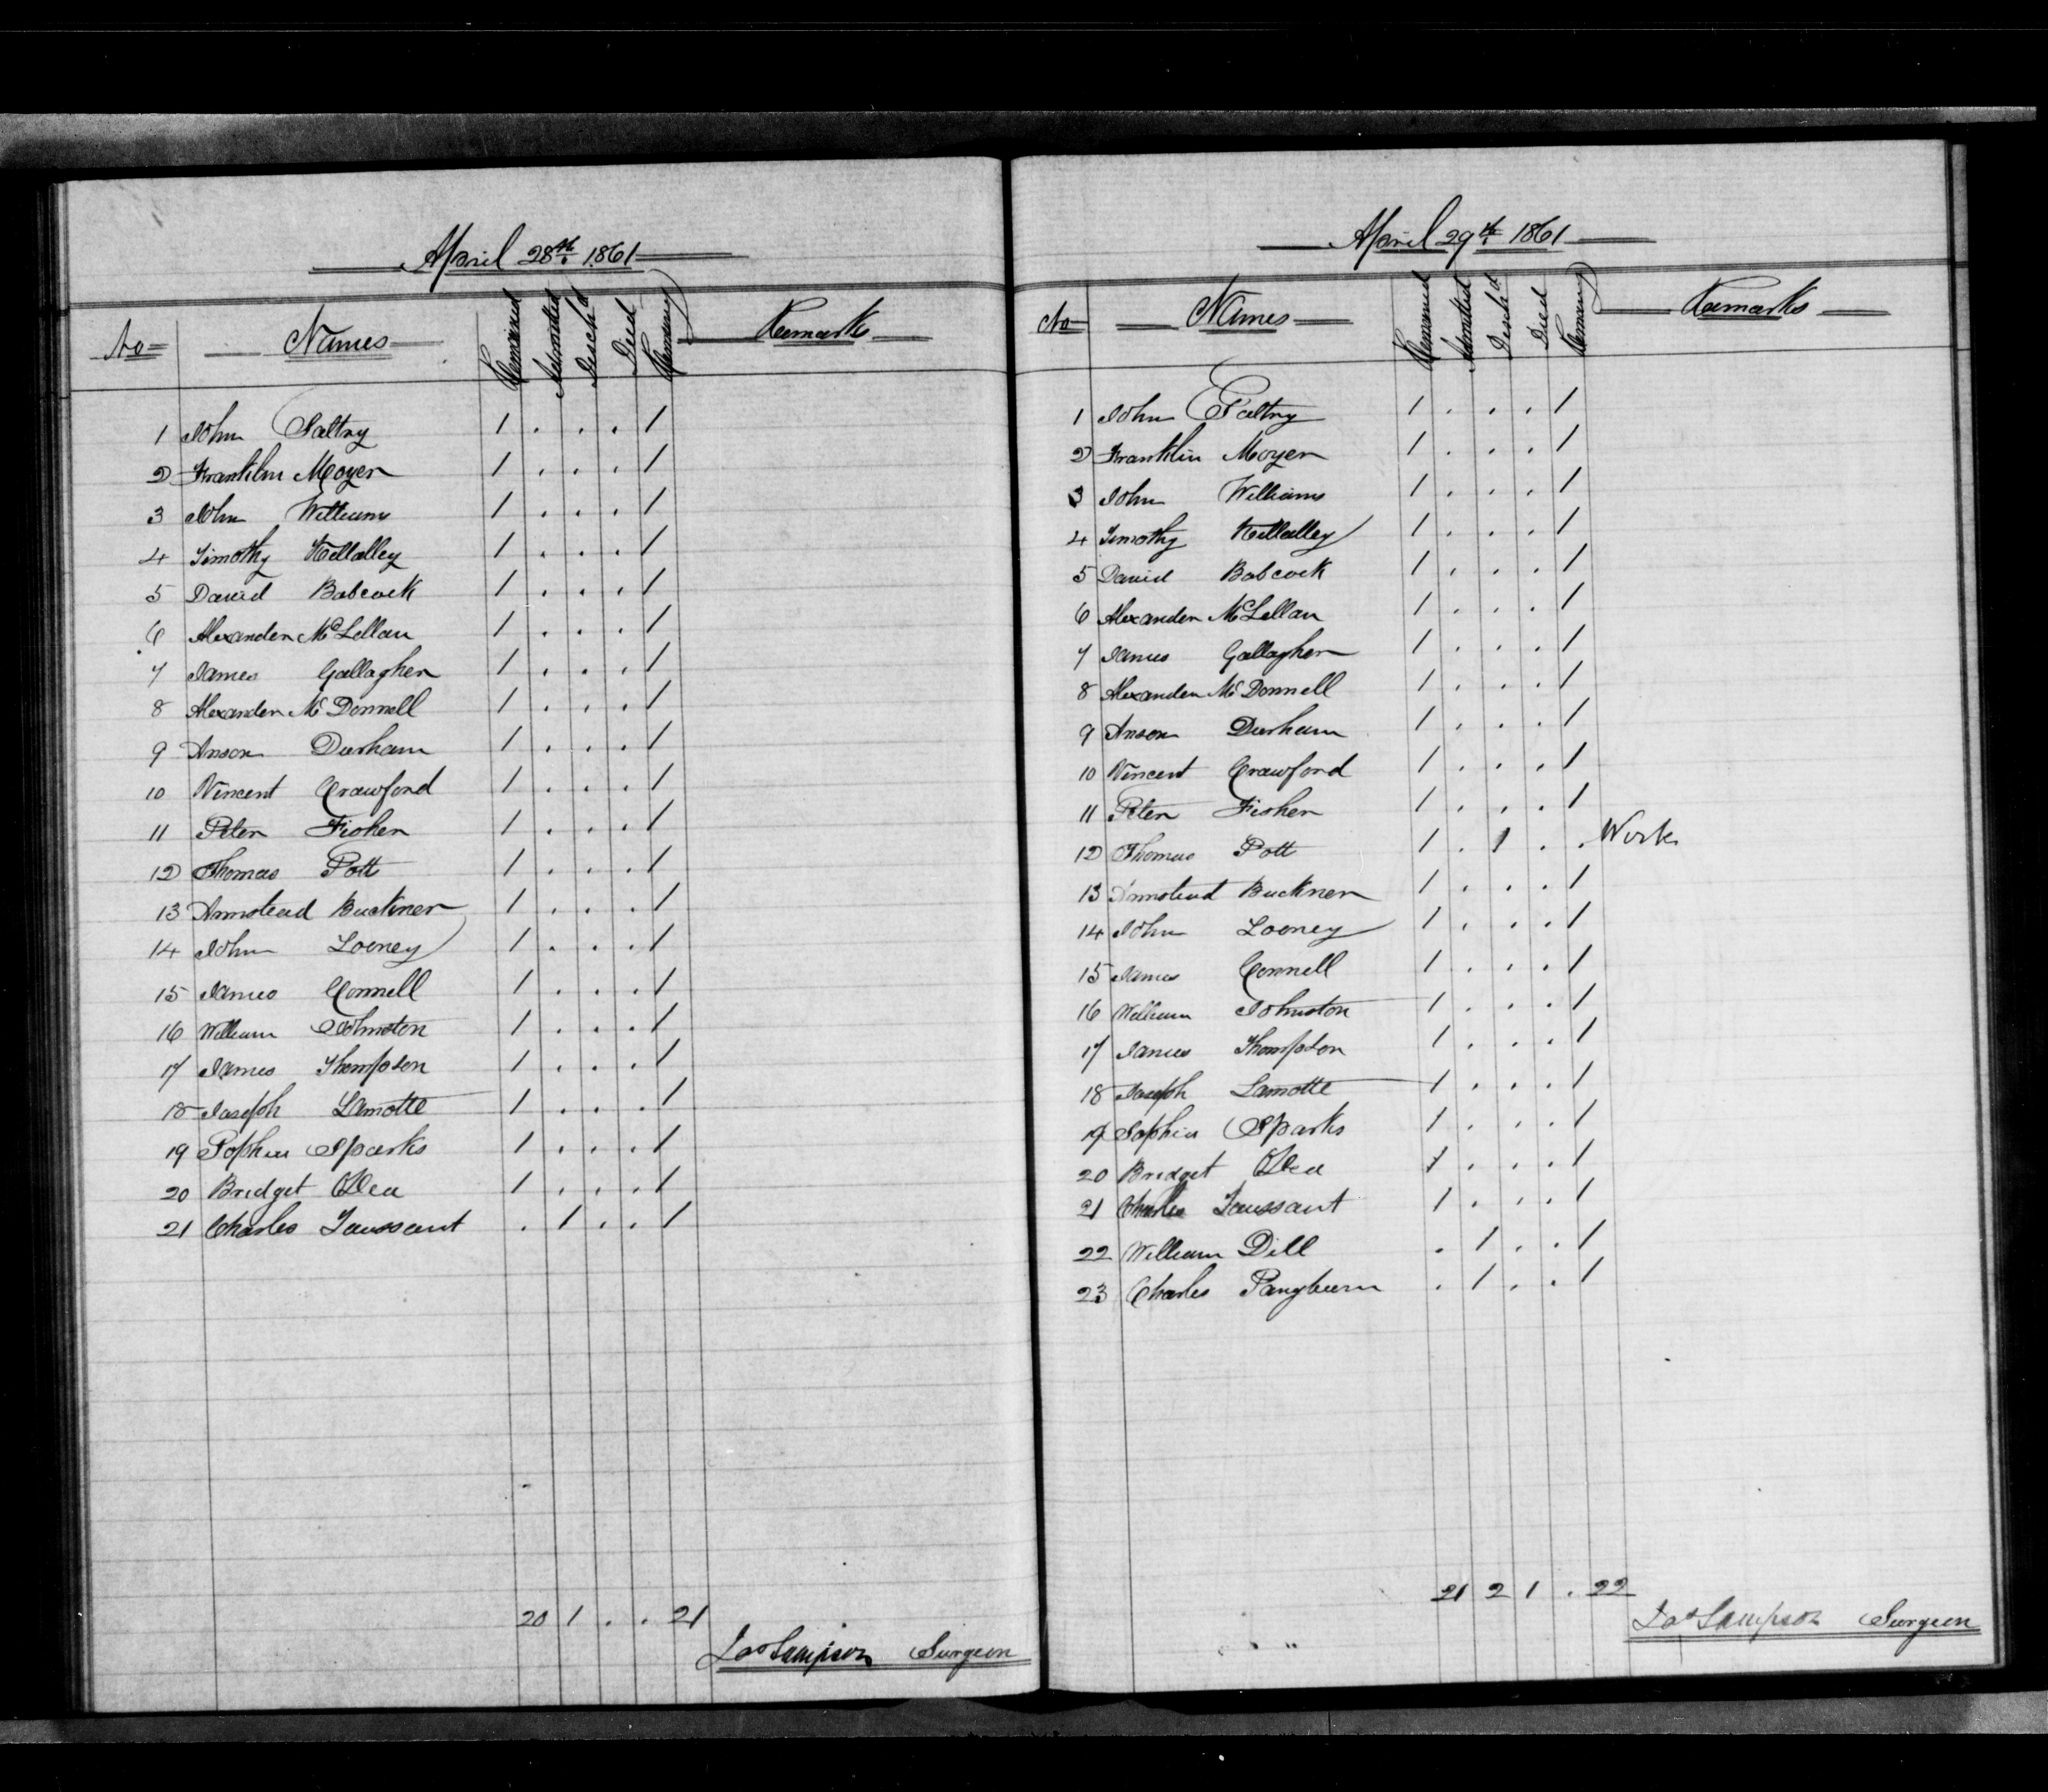 April 28th 1861
No Names Remained Admitted Disch'd Died Remaing Remarks
1 John Saltry 1 . . . 1
2 Franklin Moyer 1 . . . 1
3 John Williams 1 . . . 1
4 Timothy Killalley 1 . . . 1
5 David Babcock 1 . . . 1
6 Alexander McLellan 1 . . . 1
7 James Gallagher 1 . . . 1
8 Alexander McDonnell 1 . . . 1
9 Anson Durham 1 . . . 1
10 Vincent Crawford 1 . . . 1
11 Peter Fisher 1 . . . 1
12 Thomas Pott 1 . . . 1
13 Armstead Buckner 1 . . . 1
14 John Looney 1 . . . 1
15 James Connell 1 . . . 1
16 William Johnston 1 . . . 1
17 James Thompson 1 . . . 1
18 Joseph Lamotte 1 . . . 1
19 Sophia Sparks 1 . . . 1
20 Bridget O'Dea 1 . . . 1
21 Charles Taussant . 1 . . 1
20 1 . . 21
Jas Sampson Surgeon
April 29th 1861
No Names Remained Admitted Disch'd Died Remaing Remarks
1 John Saltry 1 . . . 1
2 Franklin Moyer 1 . . . 1
3 John Williams 1 . . . 1
4 Timothy Killalley 1 . . . 1
5 David Babcock 1 . . . 1
6 Alexander McLellan 1 . . . 1
7 James Gallagher 1 . . . 1
8 Alexander McDonnell 1 . . . 1
9 Anson Durham 1 . . . 1
10 Vincent Crawford 1 . . . 1
11 Peter Fisher 1 . . . 1
12 Thomas Pott 1 . 1 . . Work
13 Armstead Buckner 1 . . . 1
14 John Looney 1 . . . 1
15 James Connell 1 . . . 1
16 William Johnston 1 . . . 1
17 James Thompson 1 . . . 1
18 Joseph Lamotte 1 . . . 1
19 Sophia Sparks 1 . . . 1
20 Bridget O'Dea 1 . . . 1
21 Charles Taussant 1 . . . 1
22 William Dill . 1 . . 1
23 Charles Pangburn . 1 . . 1
21 2 1 . 22
Jas Sampson Surgeon